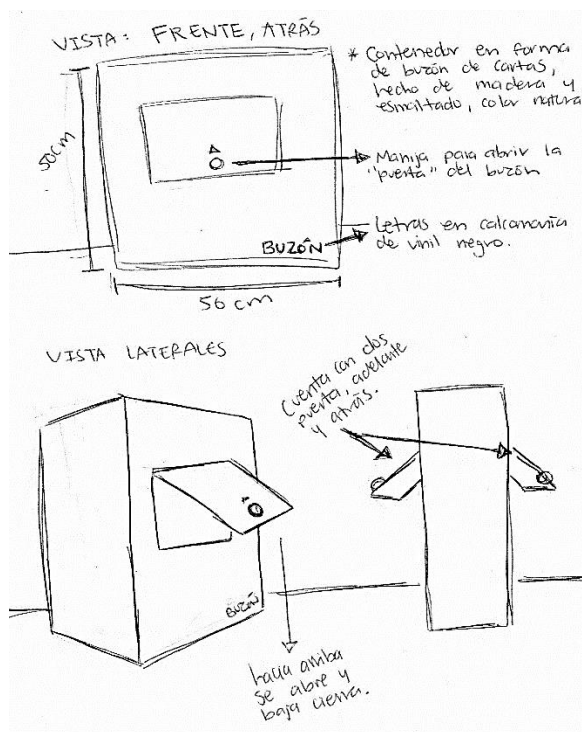 VISTA: FRENTE, ATRÁS
* Contenedor en forma
de buzón de cartas,
hecho de madera y
esmaltado, color natura
50cm
Manija para abrir la
"puerta" del buzón
Letras en calcomanía
de vinil negro.
BUZÓN
56 cm
VISTA LATERALES
Cuenta con dos
puerta, adelante
y atrás.
BUZÓN
hacia arriba
se abre y
baja cierra.